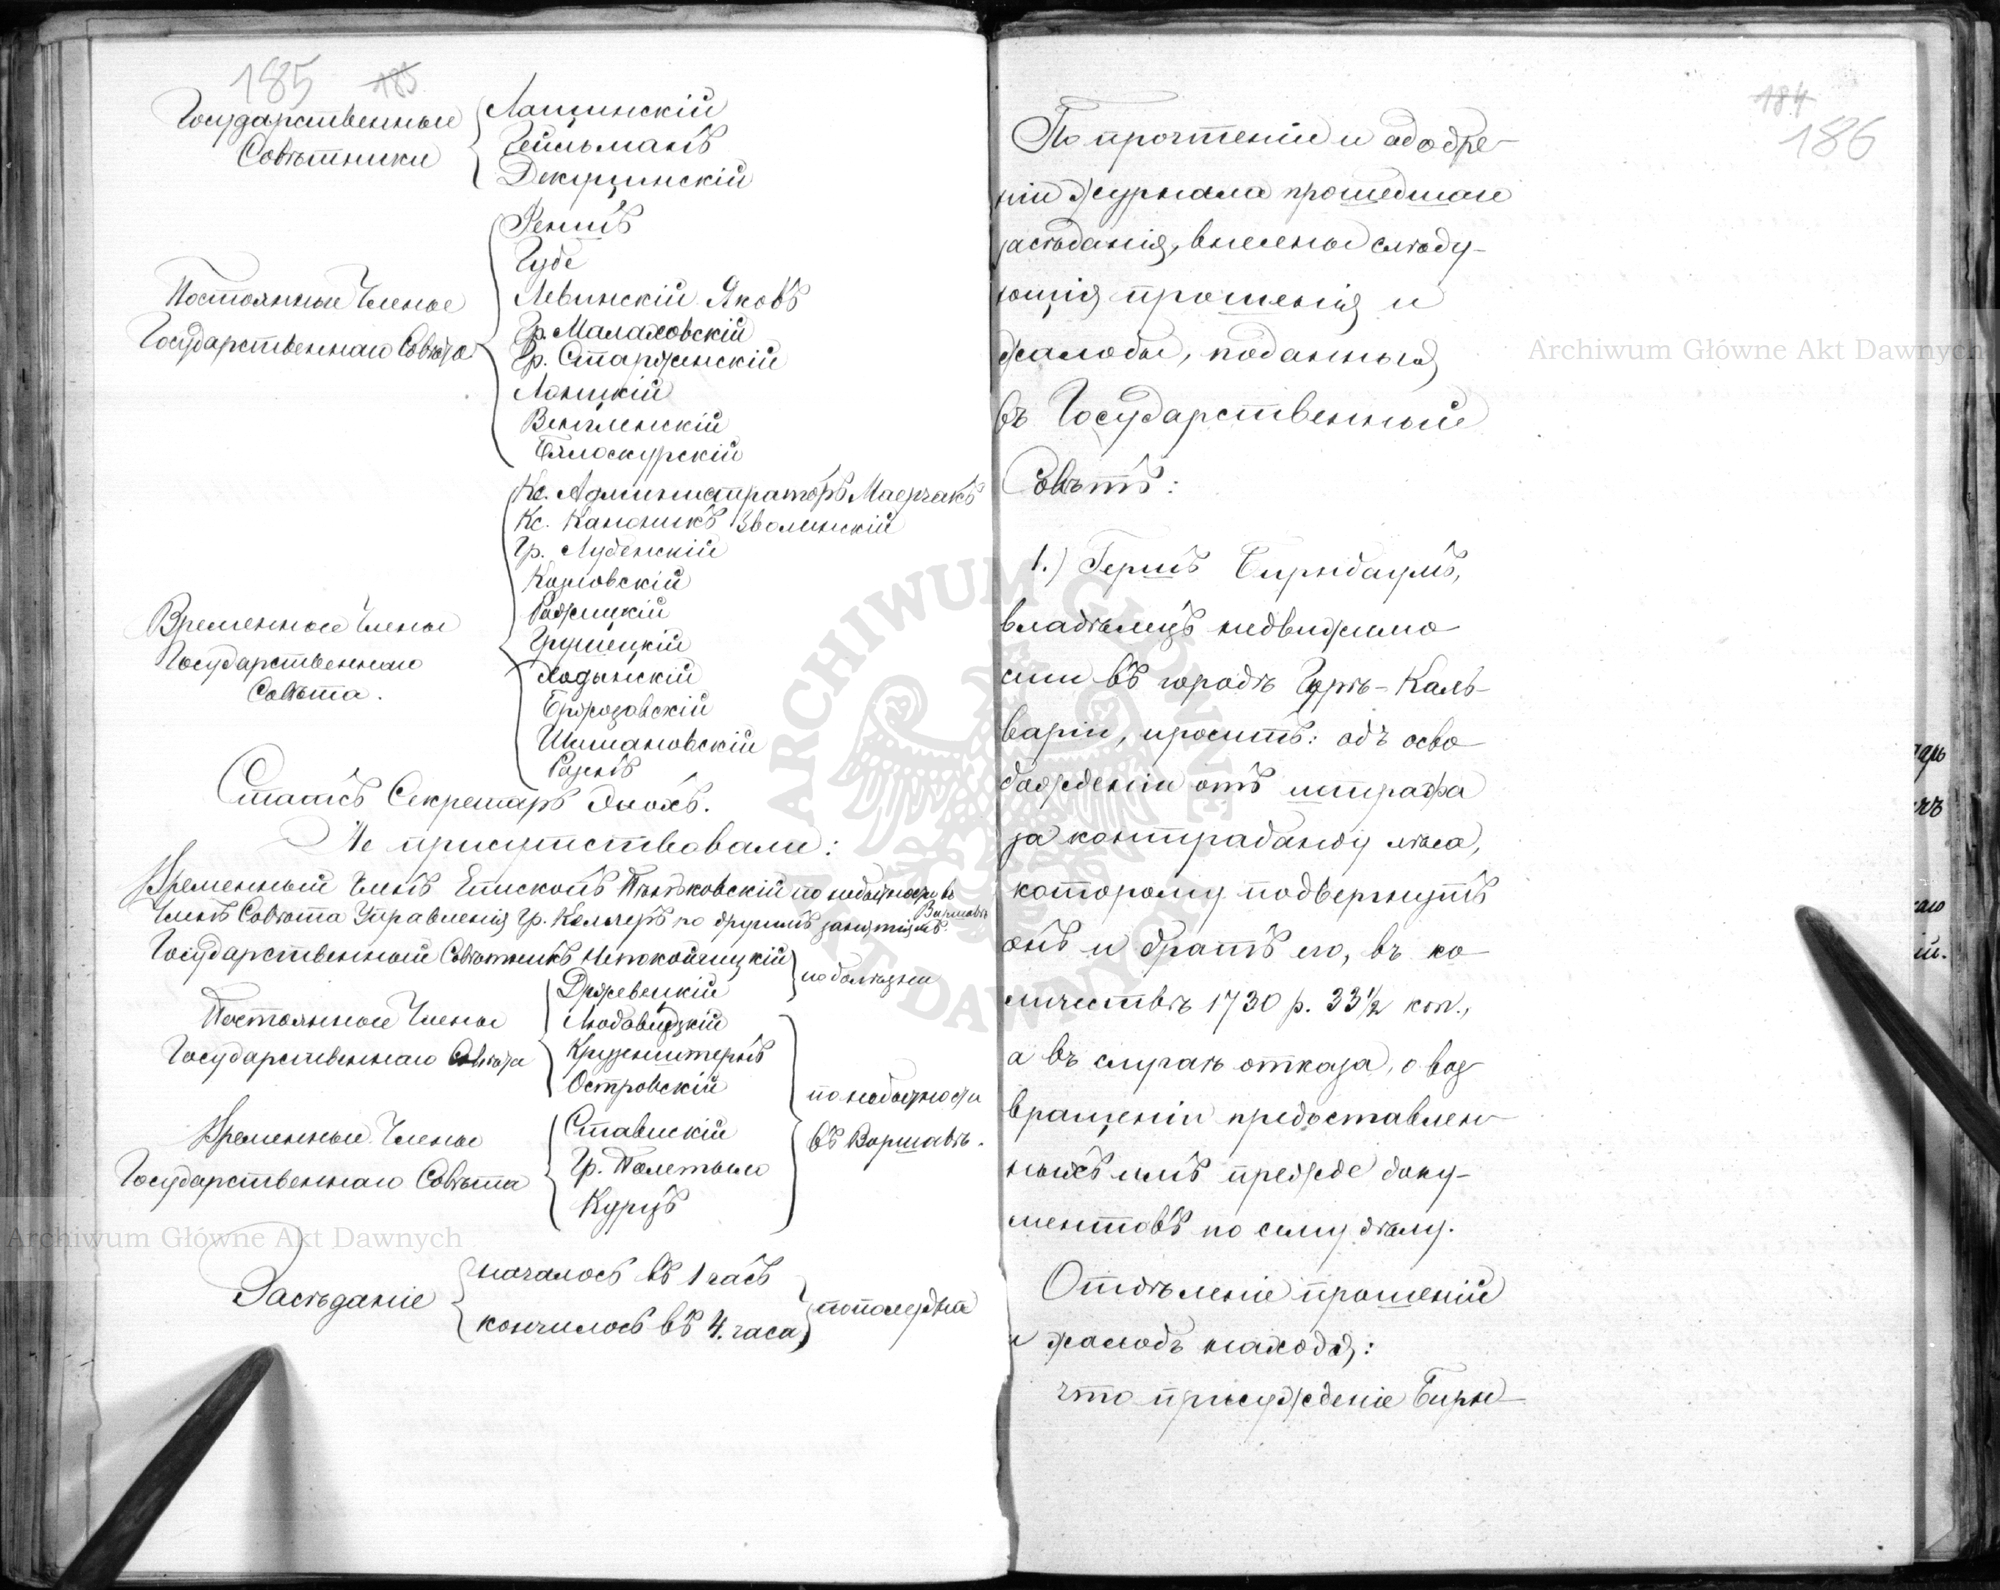 185 185
Государственные
Совѣтники
Лащинскій
Гейльманъ
Декуцинскій
Постоянные Члены
Государственнаго Совѣта
Феншъ
Губе
Левинскій Яковъ
Гр. Малаховскій
Гр. Старженскій
Лонцкій
Венгленскій
Бялоскурскій
Временные Члены
Государственнаго
Совѣта.
Кс. Администраторъ Маерчакъ
Кс. Каноникъ Зволинскій
Гр. Лубенскій
Карловскій
Раджицкій
Грушецкій
Ходынскій
Бржозовскій
Шимановскій
Статсъ Секретарь Энохъ.
Не присутствовали:
Временный Членъ Епископъ Пеньковскій по небытности въ Варшавѣ
Членъ Совѣта Управленія Гр. Келлеръ по другимъ занятіямъ.
Государственный Совѣтникъ Непокойчицкій
по болѣзни
Постоянные Члены
Государственнаго Совѣта
Држевецкій
Любовидзкій
Крузенштернъ
Островскій
Временные Члены
Государственнаго Совѣта
Ставискій
Гр. Полетыло
Курцъ
по небытности
въ Варшавѣ.
Засѣданіе
началось въ 1 часъ
кончилось въ 4. часа
пополудни
184
186
По прочтеніи и одобре-
ніи журнала прошедшаго
засѣданія, внесены слѣду-
ющія прошенія и
жалобы, поданныя
въ Государственный
Совѣтъ:
1.) Гершъ Бирнбаумъ,
владѣлецъ недвижимо
сти въ городѣ Гурѣ-Каль-
варіи, проситъ: объ осво
божденіи отъ штрафа
за контрабанду лѣса,
которому подвергнутъ
онъ и братъ его, въ ко
личествѣ 1730 р. 33 1/2 коп.,
а въ случаѣ отказа, о воз
вращеніи предоставлен
ныхъ имъ прежде доку-
ментовъ по сему дѣлу.
Отдѣленіе прошеній
и жалобъ находя:
что присужденіе Бирн
Archiwum Główne Akt Dawnych
Archiwum Główne Akt Dawnych
ARCHIWUM GŁÓWNE AKT DAWNYCH